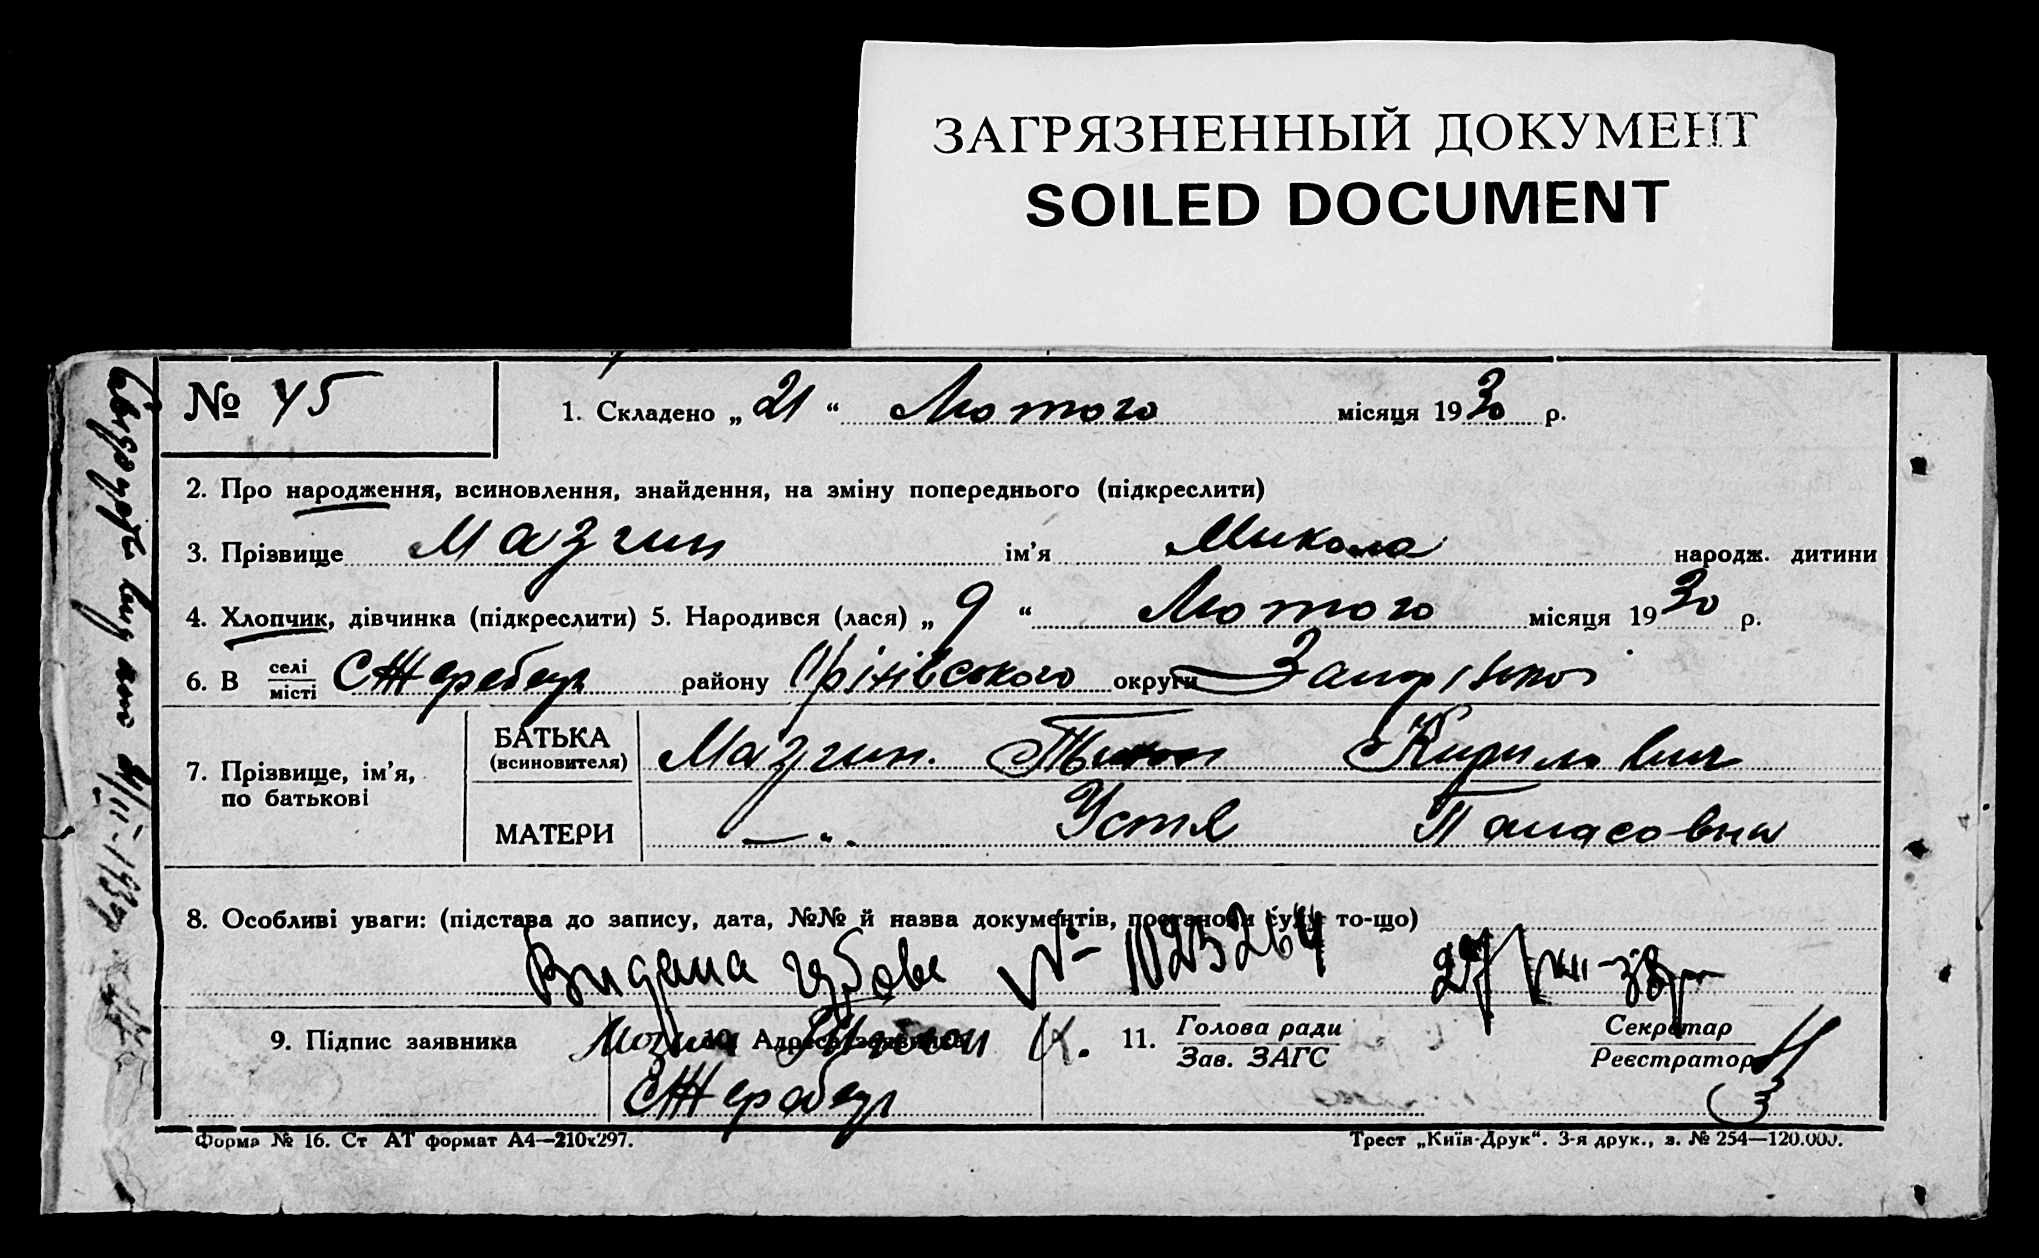 ЗАГРЯЗНЕННЫЙ ДОКУМЕНТ
SOILED DOCUMENT
№ 45
1. Складено „ 21 “ Лютого місяця 1930 р.
2. Про народження, всиновлення, знайдення, на зміну попереднього (підкреслити)
3. Прізвище Мазгин ім’я Микола народж. дитини
4. Хлопчик, дівчинка (підкреслити) 5. Народився (лася) „ 9 “ Лютого місяця 1930 р.
6. В селі
місті С Жеребець району Оріхівського округи
7. Прізвище, ім’я,
по батькові
БАТЬКА
(всиновителя) Мазгин. Кирилович
МАТЕРИ —„. Устя Панасовна
8. Особливі уваги: (підстава до запису, дата, №№ й назва документів, постанови суду то-що)
Видана № 1025264 27
9. Підпис заявника
10. Адреса заявника
С Жеребець
11. Голова ради
Зав. ЗАГС
Секретар
Реєстратор
Форма № 16. Ст АТ формат А4—210х297.
Трест „Київ-Друк“. 3-я друк., з. № 254—120.000.